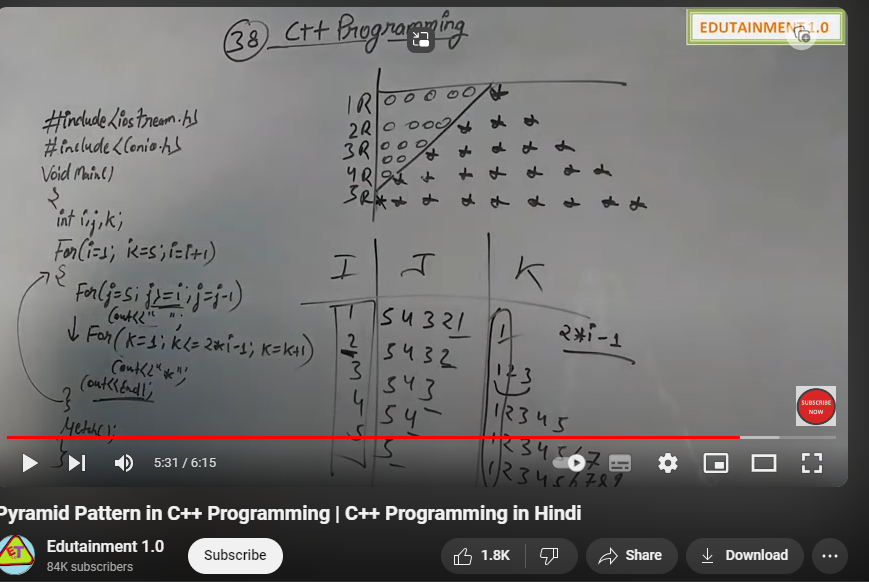 38 C++ Programming
EDUTAINMENT 1.0
#include<iostream.h>
#include<Conio.h>
Void Main()
{
int i,j,k;
For(i=1; i<=5; i=i+1)
{
For(j=5; j>=i; j=j-1)
Cout<<" ";
For(K=1; K<=2*i-1; K=K+1)
Cout<<"*";
Cout<<Endl;
}
getch();
}
1R o o o o o *
2R o o o o * * *
3R o o o * * * * *
4R o o * * * * * * *
5R o * * * * * * * * *
I J K
1 5 4 3 2 1 1 2*i-1
2 5 4 3 2 1 2 3
3 5 4 3 1 2 3 4 5
4 5 4 1 2 3 4 5 6 7
5 5 1 2 3 4 5 6 7 8 9
SUBSCRIBE
NOW
5:31 / 6:15
Pyramid Pattern in C++ Programming | C++ Programming in Hindi
ET
Edutainment 1.0
84K subscribers
Subscribe
1.8K
Share
Download